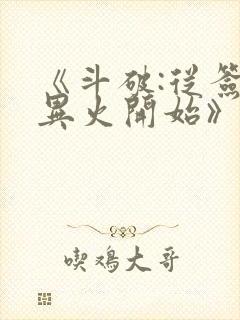 《斗破:从签
異火開始》
喫鸡大哥